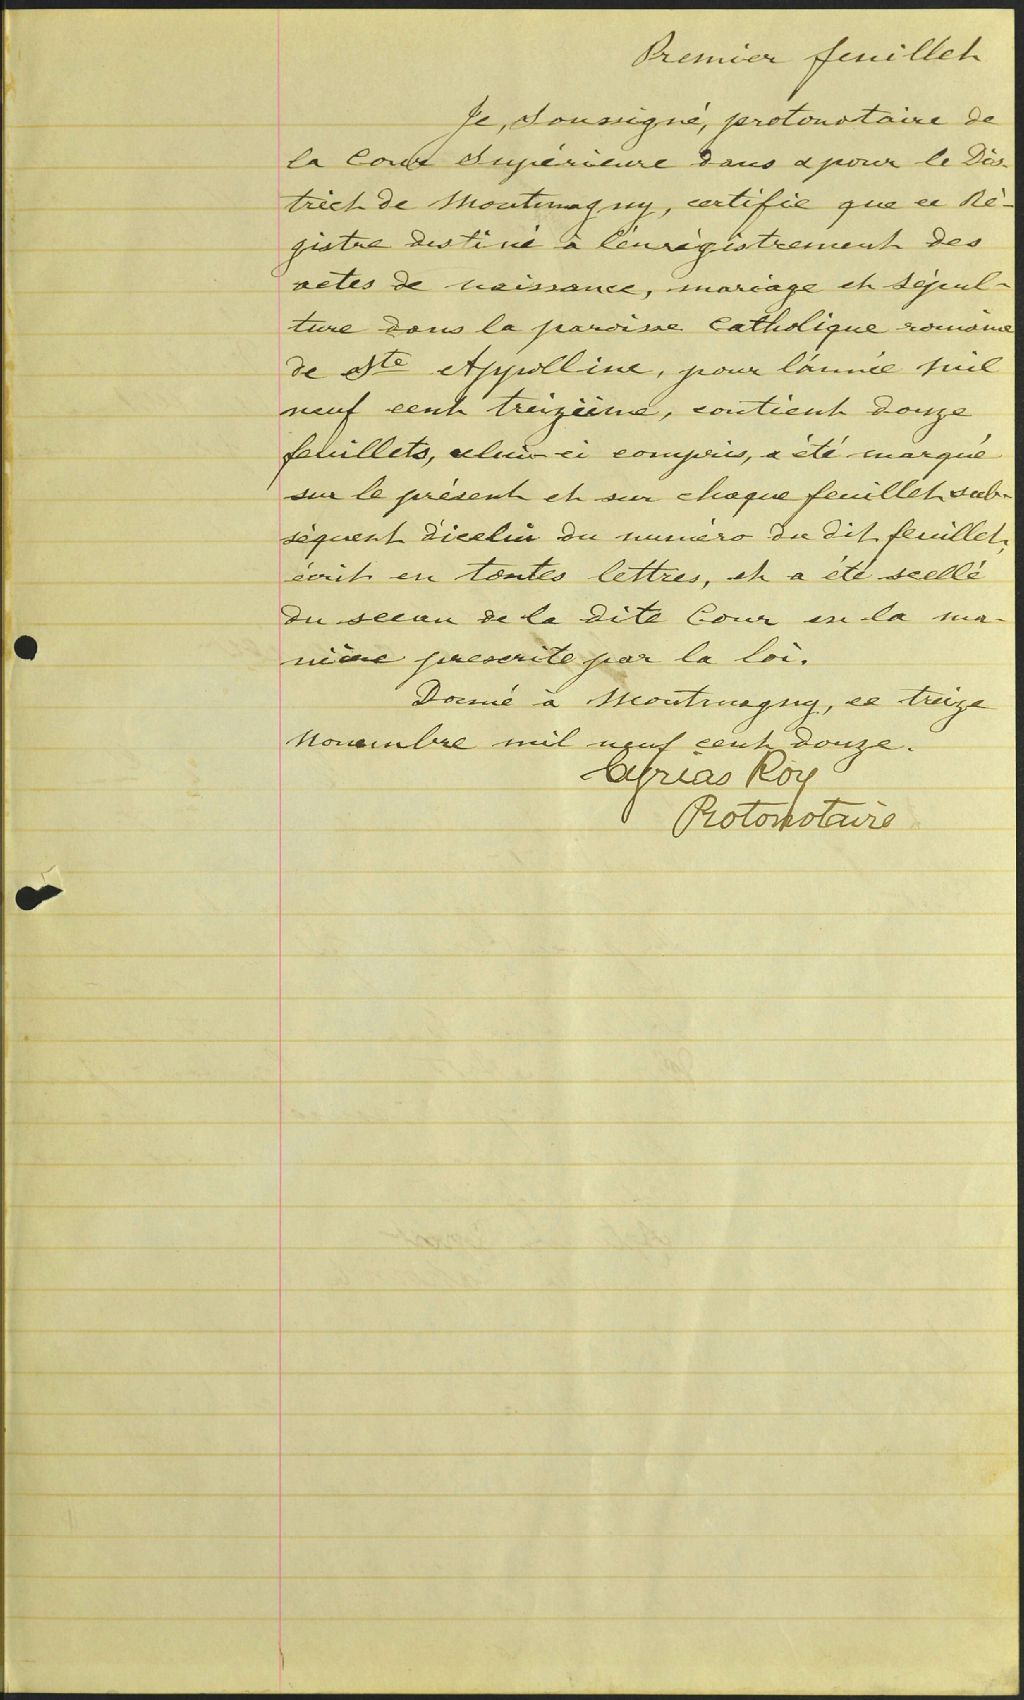 Premier feuillet
Je, soussigné, protonotaire de
la Cour Supérieure dans & pour le Dis-
trict de Montmagny, certifie que ce Ré-
gistre destiné à l'enrégistrement des
actes de naissance, mariage et sépul-
ture dans la paroisse Catholique romaine
de Ste Appolline, pour l'année mil
neuf cent treizième, contient douze
feuillets, celui-ci compris, a été marqué
sur le présent et sur chaque feuillet sub-
séquent d'icelui du numéro du dit feuillet,
écrit en toutes lettres, et a été scellé
du sceau de la dite Cour en la ma-
nière prescrite par la loi.
Donné à Montmagny, ce treize
Novembre mil neuf cent douze.
Cyrias Roy
Protonotaire